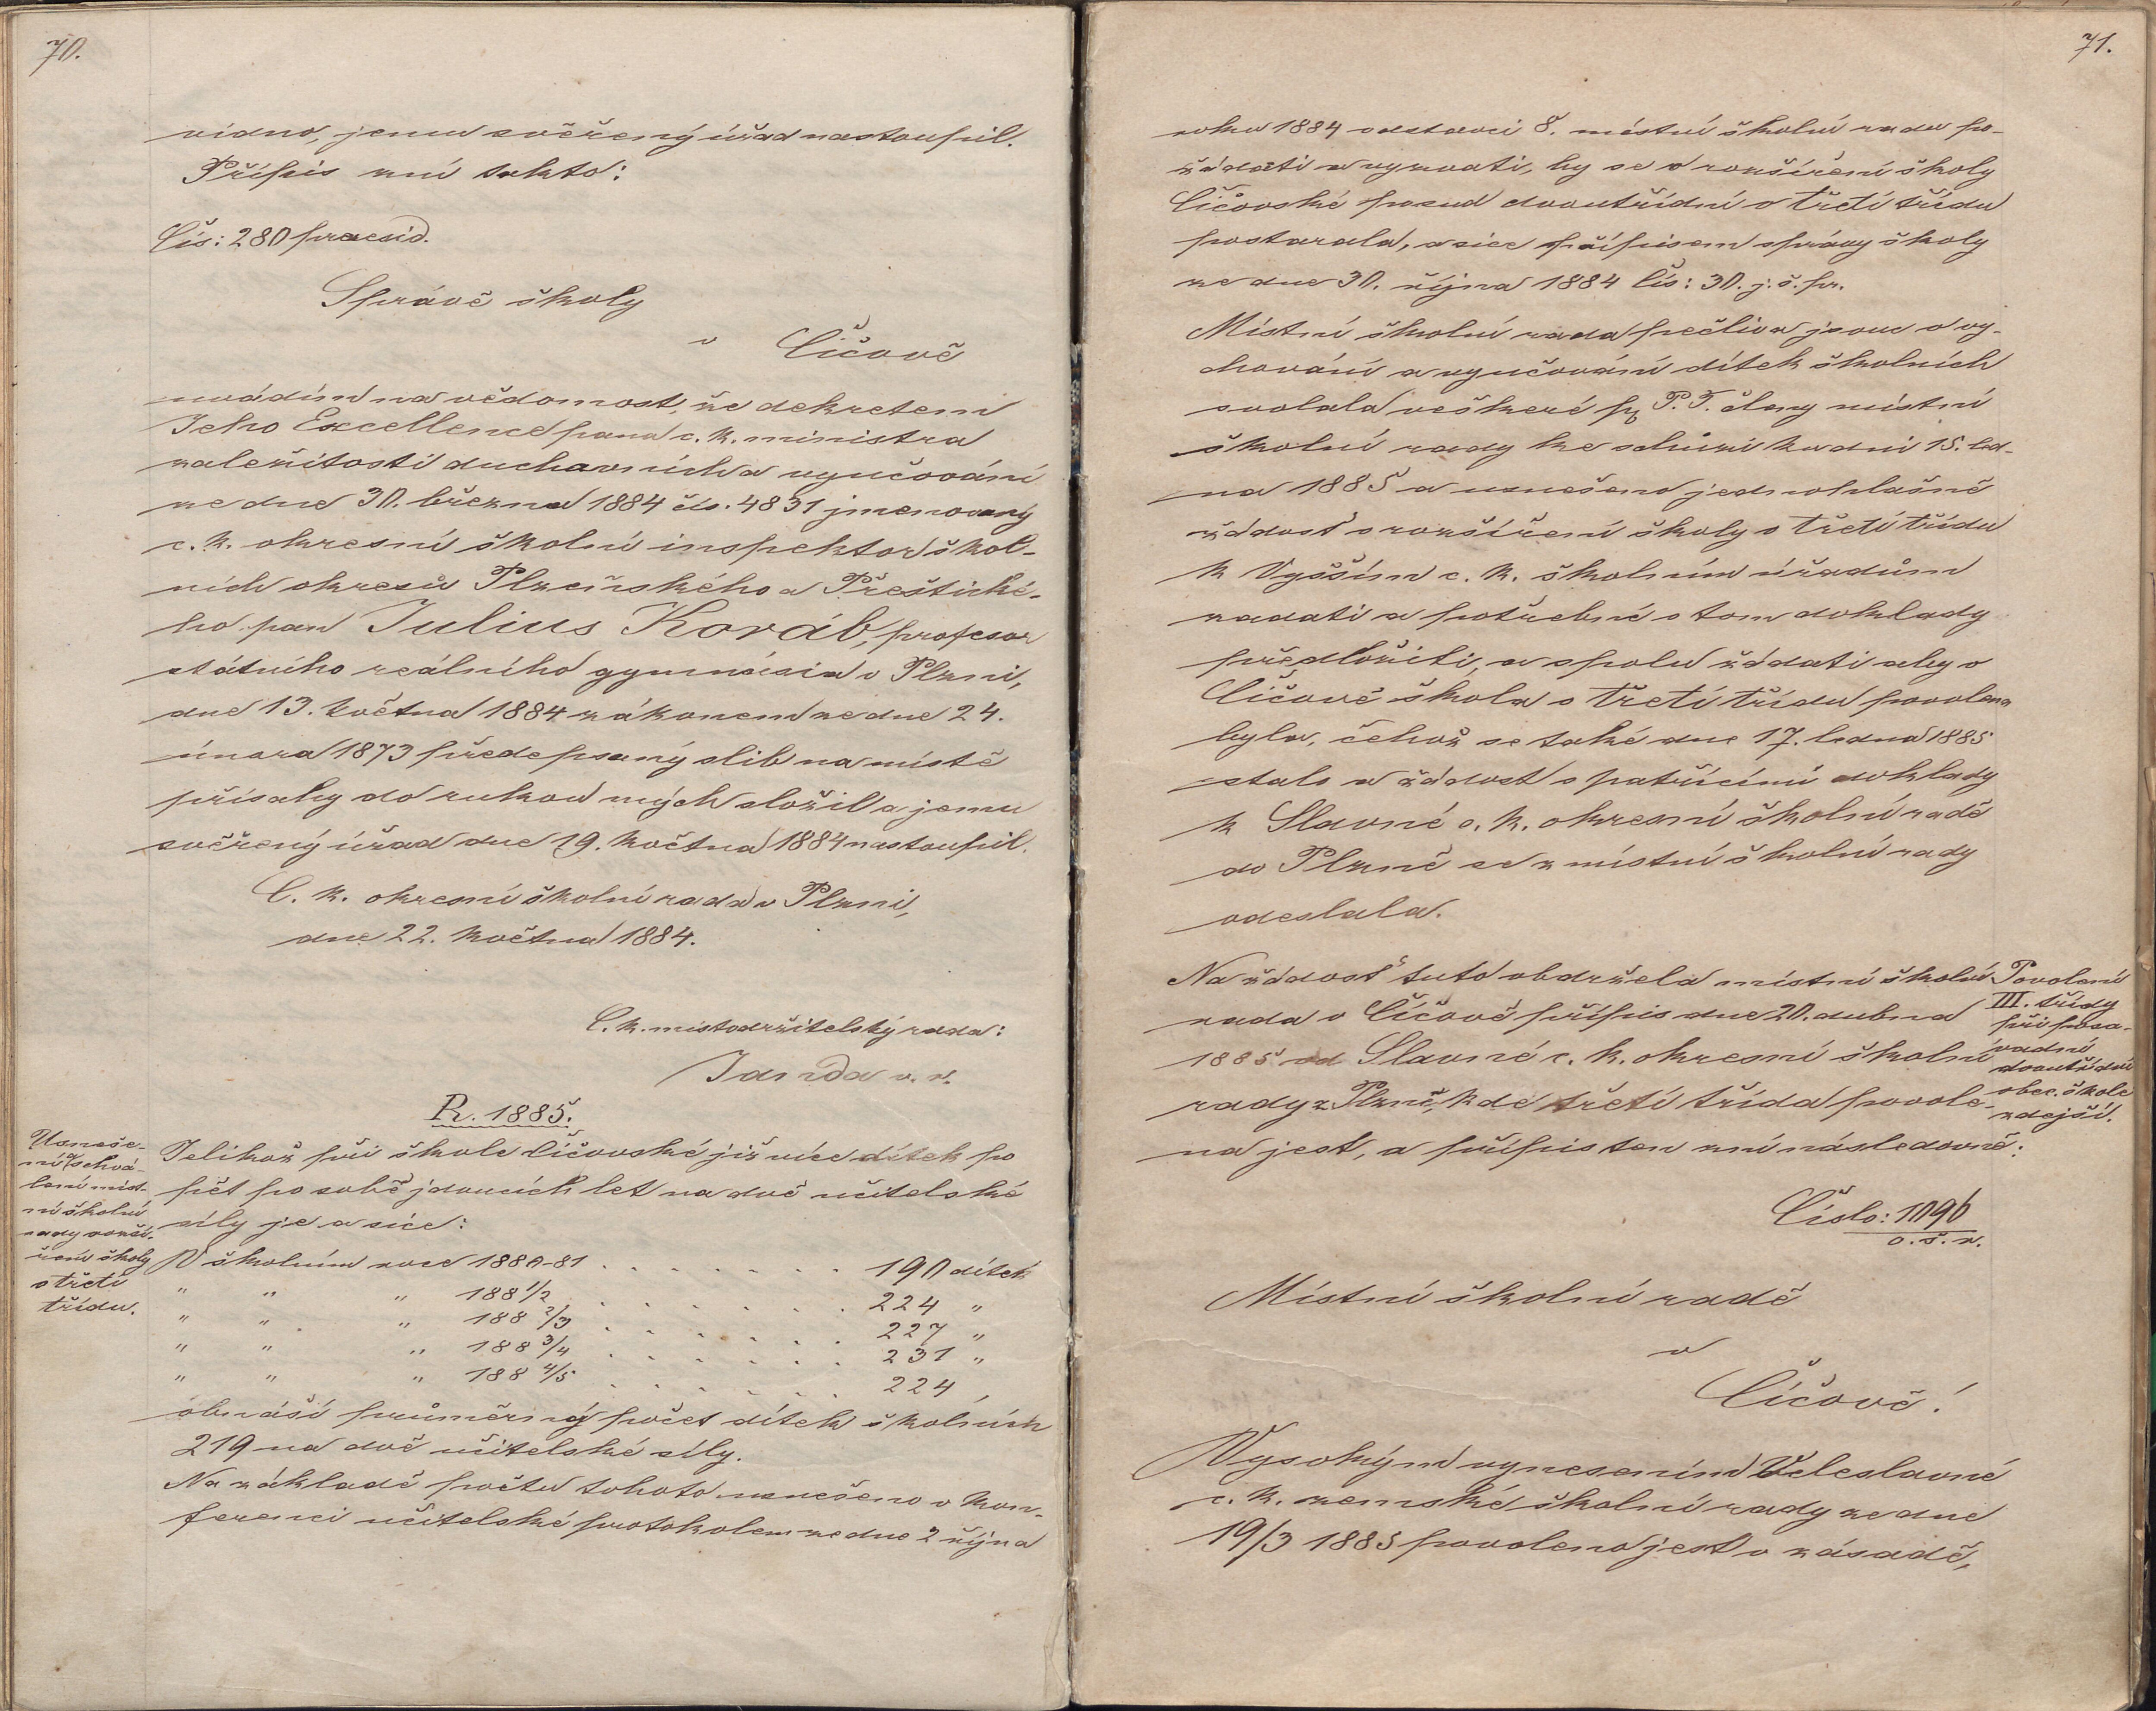 70.
vidno, jemu svěřený úřad nastoupil.
Přípis zní takto:
Čís: 280 praesid.
Správě školy
v Číčově
uvádím na vědomost, že dekretem
Jeho Excellence pana c. k. ministra
záležitostí duchovních a vyučování
ze dne 30. března 1884 čís. 4831 jmenovaný
c. k. okresní školní inspektor škol-
ních okresů Plzeňského a Přeštické-
ho pan Julius Koráb, profesor
státního reálního gymnásia v Plzni,
dne 13. května 1884 zákonem ze dne 24.
února 1873 předepsaný slib na místě
přísahy do rukou mých složil a jemu
svěřený úřad dne 19. května 1884 nastoupil.
C. k. okresní školní rada v Plzni,
dne 22. května 1884.
C. k. místodržitelský rada:
Janda v. r.
R. 1885.
Usneše-
ní /schvá-
lení míst-
ní školní
rady rozší-
ření školy
o třetí
třídu.
Jelikož při škole Číčovské již více dítek po
pět po sobě jdoucích let na dvě učitelské
síly je a sice:
V školním roce 1880-81 . . . . . . . 190 dítek
" " " 188 1/2 . . . . . . . 224 "
" " " 188 2/3 . . . . . . . 227 "
" " " 188 3/4 . . . . . . . 231 "
" " " 188 4/5 . . . . . . . 224 ,
obnáší průměrný počet dítek školních
219 na dvě učitelské síly.
Na základě počtu tohoto usnešeno v kon-
ferenci učitelské protokolem ze dne 2 října
71.
roku 1884 odstavci 8. místní školní radu po-
žádati a vyzvati, by se o rozšíření školy
Číčovské posud dvoutřídní o třetí třídu
postarala, a sice přípisem správy školy
ze dne 30. října 1884 Čís: 30. j. š. pr.
Místní školní rada pečliva jsouc o vy-
chování a vyučování dítek školních
svolala veškeré P. T. členy místní
školní rady ke schůzi ku dni 15. led-
na 1885 a usnešeno jednohlasně
žádosť o rozšíření školy o třetí třídu
k Vyšším c. k. školním úřadům
zadati a potřebné o tom doklady
předložiti, a spolu žádati aby v
Číčově škola o třetí třídu povolena
byla, čehož se také dne 17. ledna 1885
stalo a žádost s patřičnými doklady
k Slavné c. k. okresní školní radě
do Plzně se z místní školní rady
odeslala.
Na žádosť tuto obdržela místní školní
rada v Číčově přípis dne 20. dubna
1885 od Slavné c. k. okresní školní
rady z Plzně, kde třetí třída povole-
na jest, a přípis ten zní následovně:
Povolení
III. třídy
při posa-
vadní
dvoutřídní
obec. škole
zdejší.
Číslo: 1096
o. š. r.
Místní školní radě
v
Číčově!
Vysokým vynesením Veleslavné
c. k. zemské školní rady ze dne
19/3 1885 povoleno jest v zásadě,